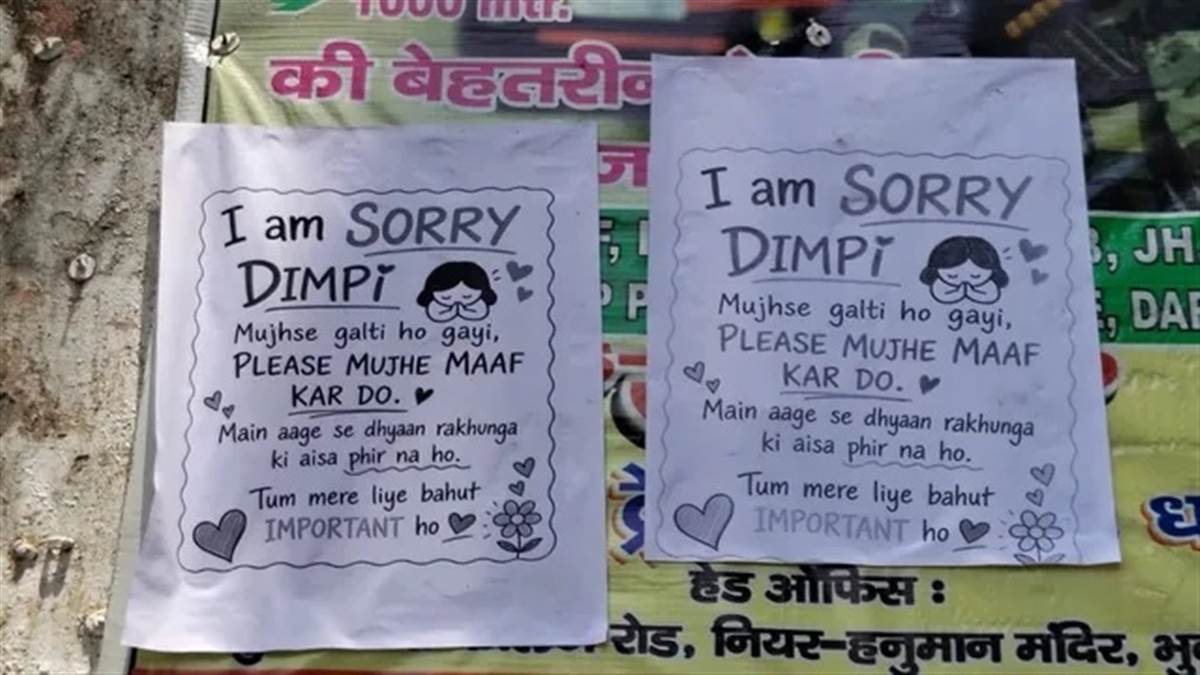 1000 mtr.
की बेहतरीन
I am SORRY
DIMPi
Mujhse galti ho gayi,
PLEASE MUJHE MAAF
KAR DO.
Main aage se dhyaan rakhunga
ki aisa phir na ho.
Tum mere liye bahut
IMPORTANT ho
I am SORRY
DIMPi
Mujhse galti ho gayi,
PLEASE MUJHE MAAF
KAR DO.
Main aage se dhyaan rakhunga
ki aisa phir na ho.
Tum mere liye bahut
IMPORTANT ho
JH
हेड ऑफिस :
रोड, नियर-हनुमान मंदिर,